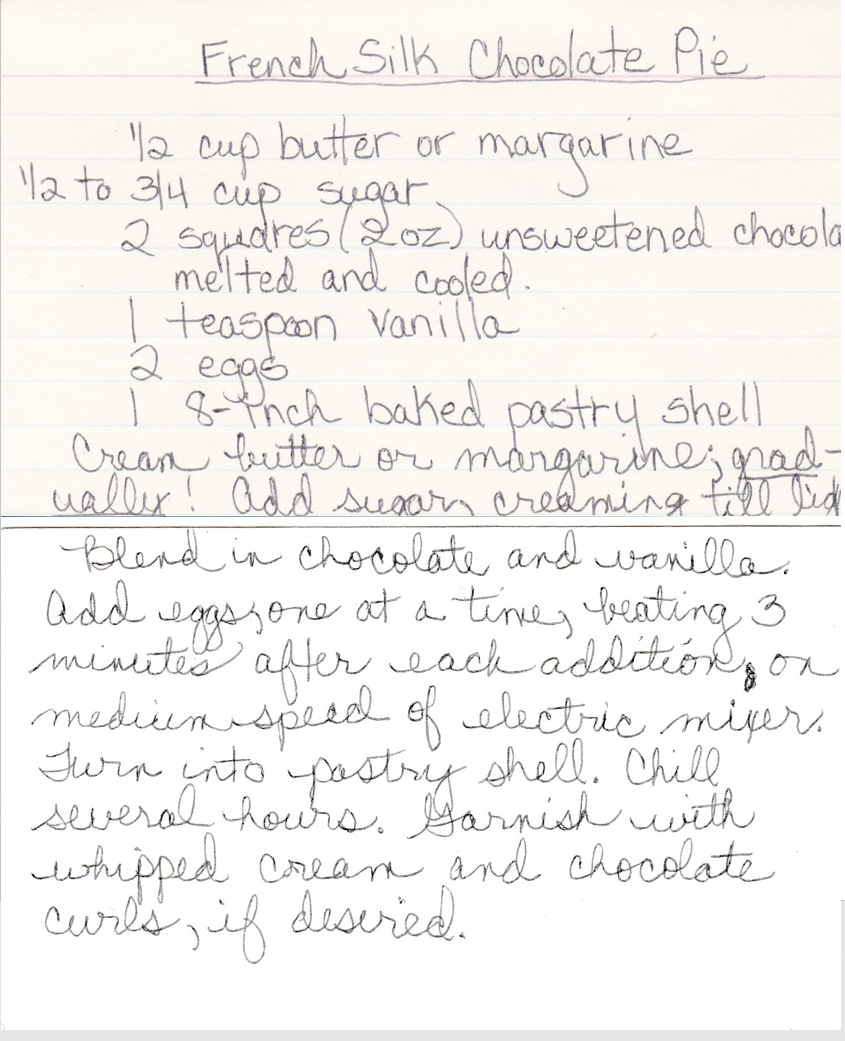 French Silk Chocolate Pie
1/2 cup butter or margarine
1/2 to 3/4 cup sugar
2 squares (2oz) unsweetened chocola
melted and cooled.
1 teaspoon vanilla
2 eggs
1 8-inch baked pastry shell
Cream butter or margarine; grad-
ually! Add sugar, creaming till
Blend in chocolate and vanilla.
Add eggs, one at a time, beating 3
minutes after each addition, on
medium speed of electric mixer.
Turn into pastry shell. Chill
several hours. Garnish with
whipped cream and chocolate
curls, if desired.